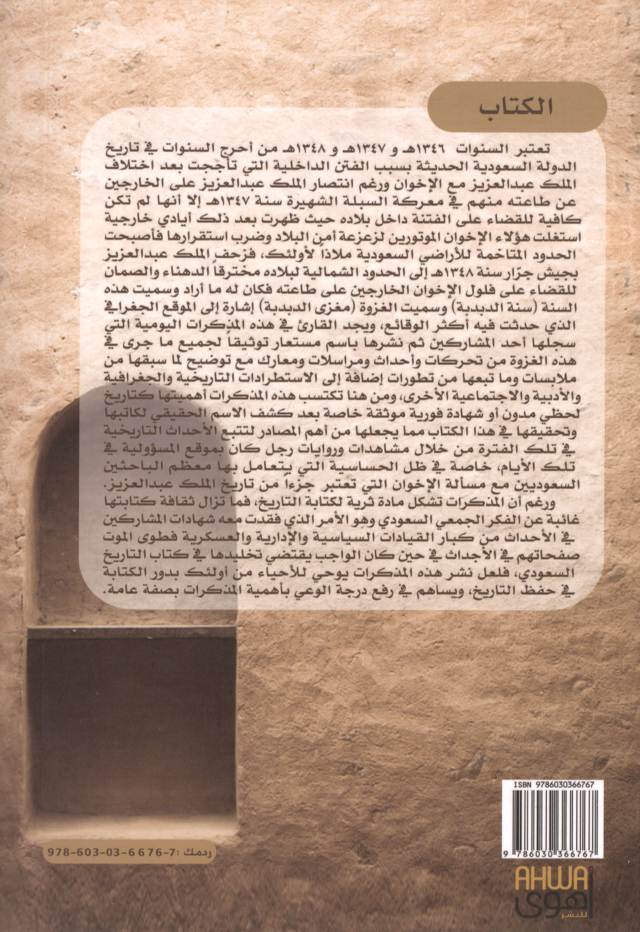 الكتاب
تعتبر السنوات ١٣٤٦هـ و ١٣٤٧هـ و ١٣٤٨هـ من أحرج السنوات في تاريخ
الدولة السعودية الحديثة بسبب الفتن الداخلية التي تأججت بعد اختلاف
الملك عبدالعزيز مع الإخوان ورغم انتصار الملك عبدالعزيز على الخارجين
عن طاعته منهم في معركة السبلة الشهيرة سنة ١٣٤٧هـ إلا أنها لم تكن
كافية للقضاء على الفتنة داخل بلاده حيث ظهرت بعد ذلك أيادي خارجية
استغلت هؤلاء الإخوان الموتورين لزعزعة أمن البلاد وضرب استقرارها فأصبحت
الحدود المتاخمة للأراضي السعودية ملاذاً لأولئك، فزحف الملك عبدالعزيز
بجيش جرّار سنة ١٣٤٨هـ إلى الحدود الشمالية لبلاده مخترقاً الدهناء والصمان
للقضاء على فلول الإخوان الخارجين على طاعته فكان له ما أراد وسميت هذه
السنة (سنة الدبدبة) وسميت الغزوة (مغزى الدبدبة) إشارة إلى الموقع الجغرافي
الذي حدثت فيه أكثر الوقائع، ويجد القارئ في هذه المذكرات اليومية التي
سجلها أحد المشاركين ثم نشرها باسم مستعار توثيقاً لجميع ما جرى في
هذه الغزوة من تحركات وأحداث ومراسلات ومعارك مع توضيح لما سبقها من
ملابسات وما تبعها من تطورات إضافة إلى الاستطرادات التاريخية والجغرافية
والأدبية والاجتماعية الأخرى، ومن هنا تكتسب هذه المذكرات أهميتها كتاريخ
لحظي مدون أو شهادة فورية موثقة خاصة بعد كشف الاسم الحقيقي لكاتبها
وتحقيقها في هذا الكتاب مما يجعلها من أهم المصادر لتتبع الأحداث التاريخية
في تلك الفترة من خلال مشاهدات وروايات رجل كان بموقع المسؤولية في
تلك الأيام، خاصة في ظل الحساسية التي يتعامل بها معظم الباحثين
السعوديين مع مسألة الإخوان التي تعتبر جزءاً من تاريخ الملك عبدالعزيز.
ورغم أن المذكرات تشكل مادة ثرية لكتابة التاريخ، فما تزال ثقافة كتابتها
غائبة عن الفكر الجمعي السعودي وهو الأمر الذي فقدت معه شهادات المشاركين
في الأحداث من كبار القيادات السياسية والإدارية والعسكرية فطوى الموت
صفحاتهم في الأجداث في حين كان الواجب يقتضي تخليدها في كتاب التاريخ
السعودي، فلعل نشر هذه المذكرات يوحي للأحياء من أولئك بدور الكتابة
في حفظ التاريخ، ويساهم في رفع درجة الوعي بأهمية المذكرات بصفة عامة.
ISBN 9786030366767
9 786030 366767
ردمك : 978-603-03-6676-7
AHWA
أهوى
للنشر